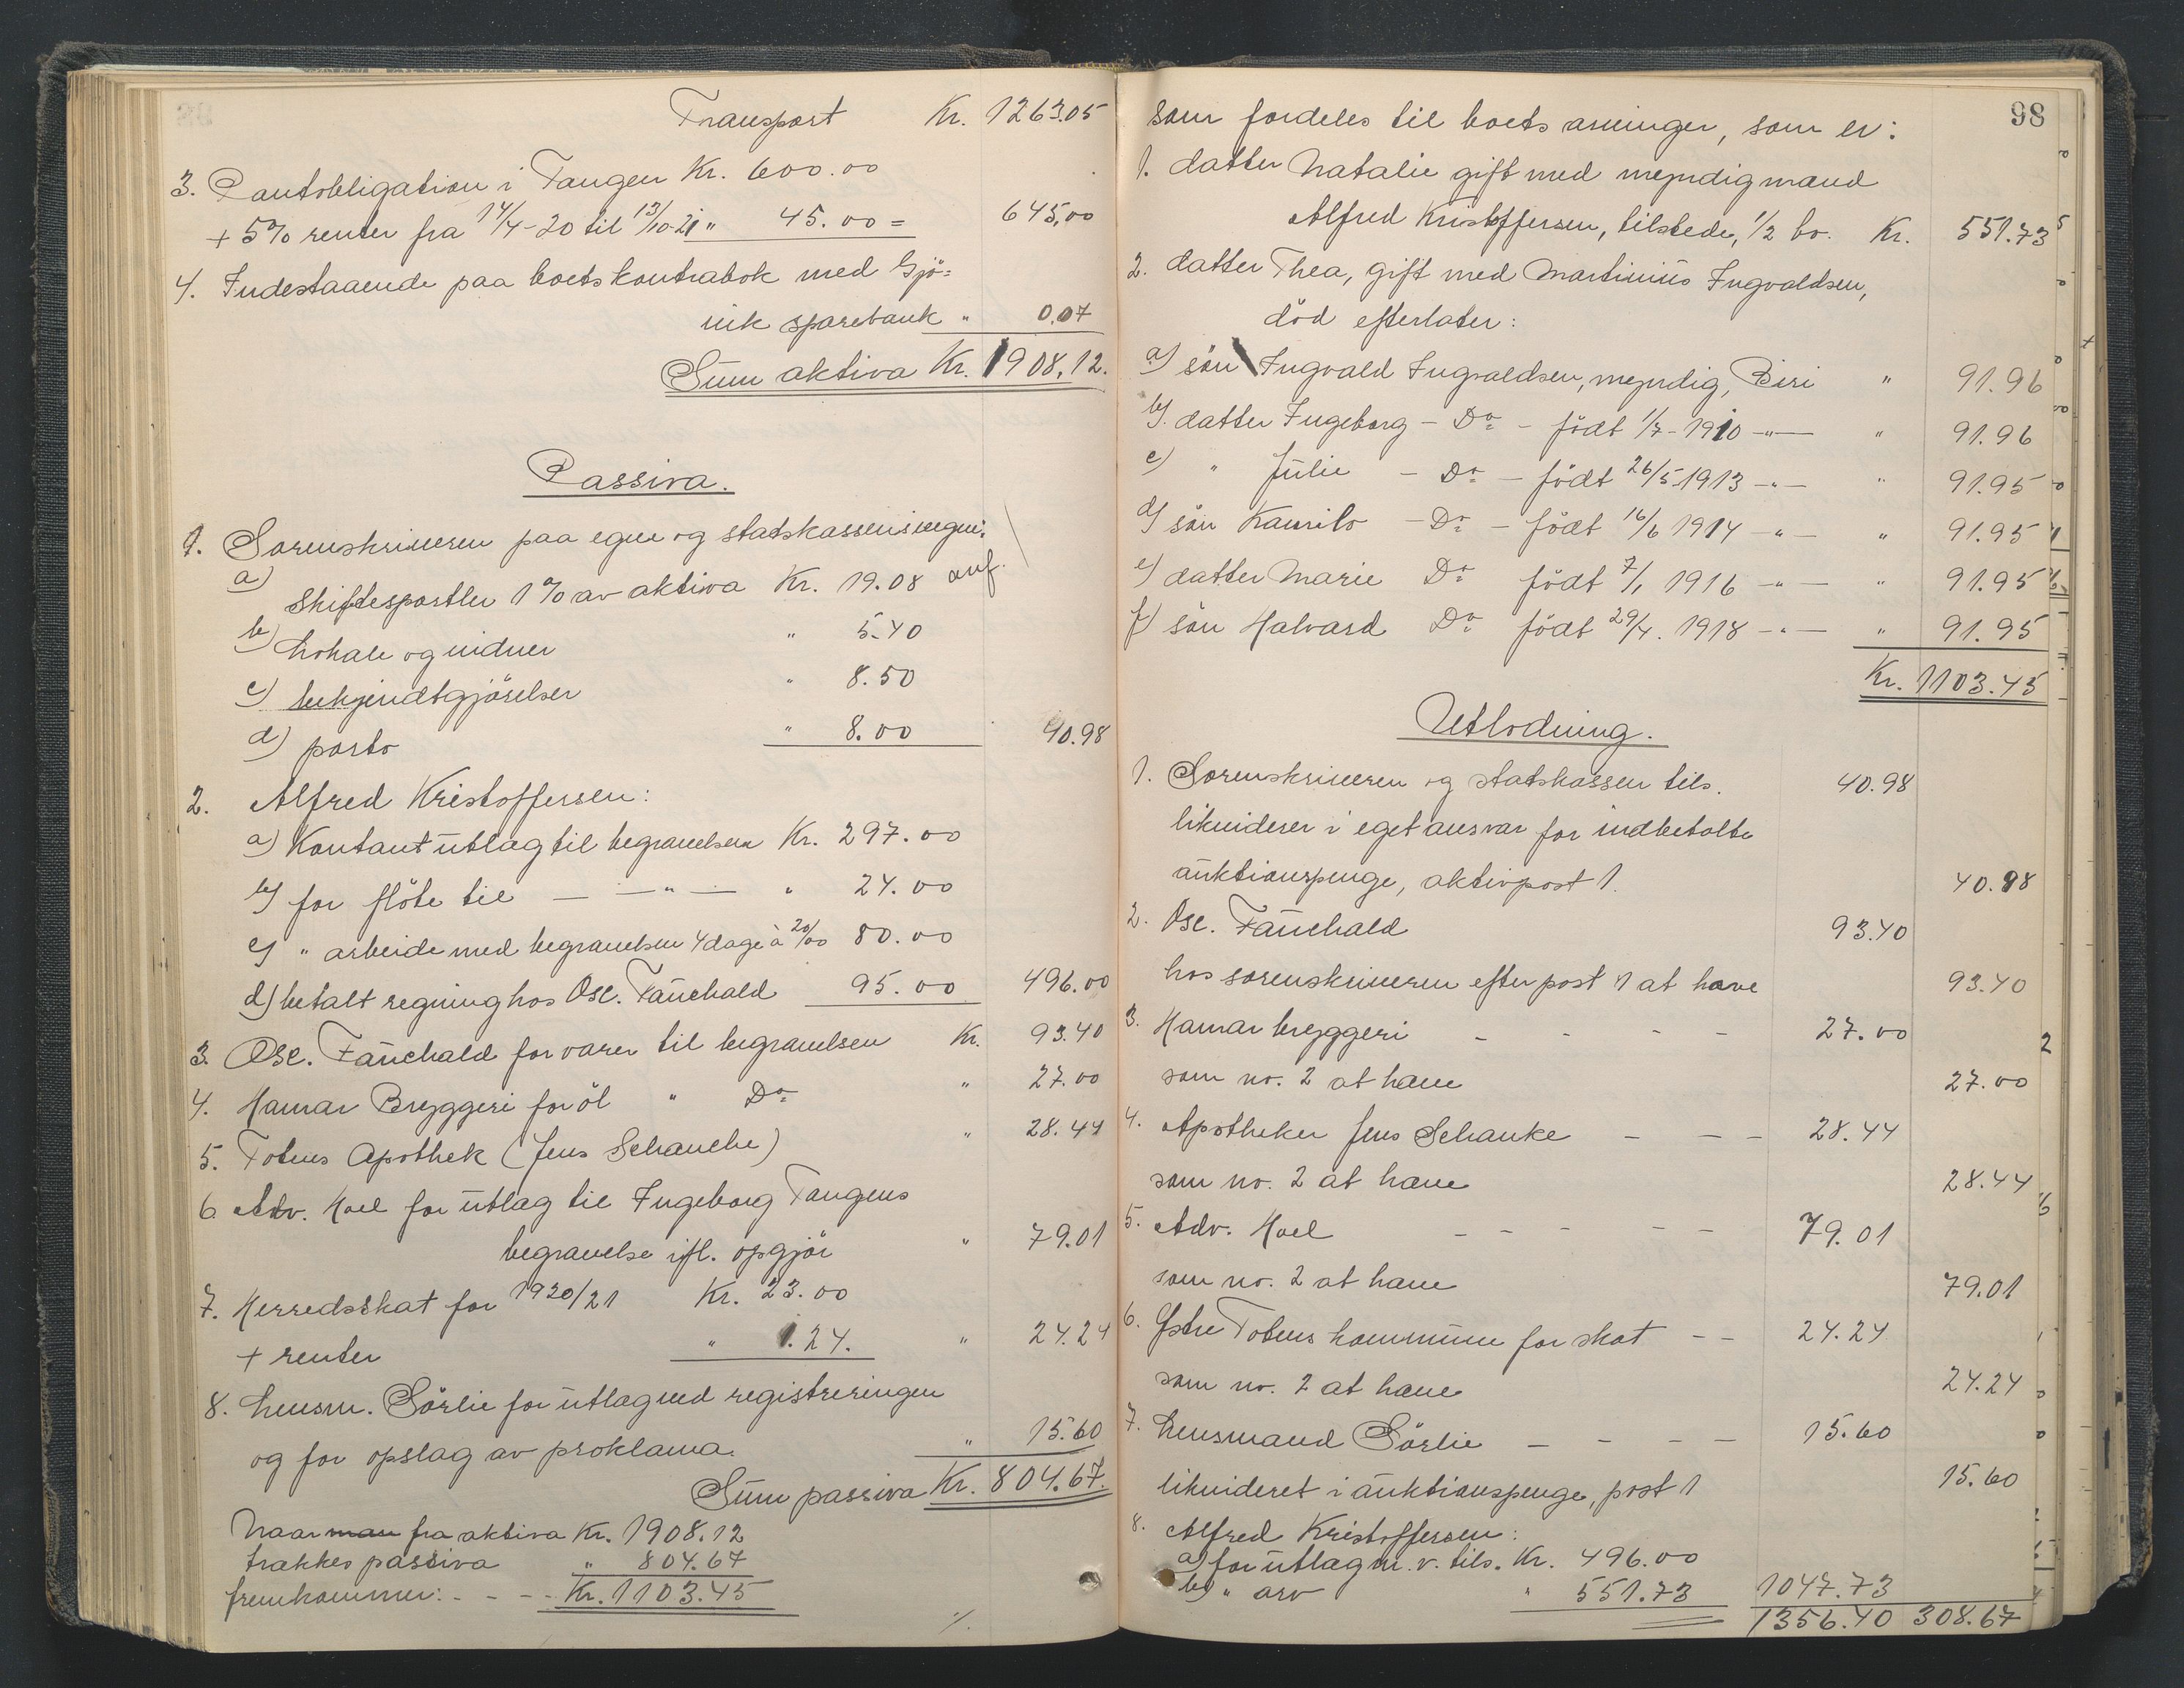 Transport Kr. 1263.05
3. Pantobligation i Tangen Kr. 600.00
+ 5% renter fra 14/4-20 til 13/10-21 " 45.00 = 645,00
4. Indestaaende paa boets kontrabok med Gjö-
vik sparebank " 0.07
Sum aktiva Kr. 1908,12.
Passiva.
1. Sorenskriveren paa egne og statskassens vegne:
a) Skiftesportler 1% av aktiva Kr. 19.08
b) Lokale og vidner " 5.40
c) bekjendtgjörelser " 8.50
d) porto " 8.00 40.98
2. Alfred Kristoffersen:
a) Kontant utlag til begravelsen Kr. 297.00
b) for flöte til — " — " 24.00
c) " arbeide med begravelsen 4 dage à 20/00 80.00
d) betalt regning hos Osc. Fauchald 95.00 496.00
3. Osc. Fauchald for varer til begravelsen Kr. 93.40
4. Hamar Bryggeri for öl " Do " 27.00
5. Totens Apothek (Jens Schanche) " 28.44
6. Adv. Hoel for utlag til Ingeborg Tangens
begravelse ifl. opgjör " 79.01
7. Herredsskat for 1920/21 Kr. 23.00
+ renter " 1.24. " 24.24
8. Lensm. Sörlie for utlag ved registreringen
og for opslag av proklama. " 15.60
Sum passiva Kr. 804.67.
Naar man fra aktiva Kr. 1908.12
trækkes passiva " 804.67
fremkommer: - - - Kr. 1103.45
./.
98
som fordeles til boets arvinger, som er:
1. datter Natalie gift med myndig mand
Alfred Kristoffersen, tilstede, 1/2 lo. Kr. 551.73
2. datter Thea, gift med Martinius Ingvaldsen,
död efterlater:
a) sön Ingvald Ingvaldsen, myndig, Biri " 91.96
b) datter Ingeborg - Do - födt 1/7-1910 -"- " 91.96
c) " Julie - Do - födt 26/5 1913 -"- " 91.95
d) sön Kaurito - Do - födt 16/6 1914 -"- " 91.95
e) datter Marie Do födt 7/1 1916 -"- " 91.95
f) sön Halvard Do födt 29/4. 1918 -"- " 91.95
Kr. 1103.45
Utlodning.
1. Sorenskriveren og statskassen tils. 40.98
likviderer i eget ansvar for indbetalte
auktionspenge, aktivpost 1. 40.98
2. Osc. Fauchald 93.40
hos sorenskriveren efter post 1 at have 93.40
3. Hamar bryggeri - - - 27.00
som no. 2 at have 27.00
4. Apotheker Jens Schanke - - - 28.44
som no. 2 at have 28.44
5. Adv. Hoel - - - - 79.01
som no. 2 at have 79.01
6. Östre Totens kommune for skat - - 24.24
som no. 2 at have 24.24
7. Lensmand Sörlie - - - - 15.60
likvideret i auktionspenge, post 1 15.60
8. Alfred Kristoffersen:
a) for utlag m. v. tils. Kr. 496.00
b) " arv " 551.73 1047.73
1356.40 308.67